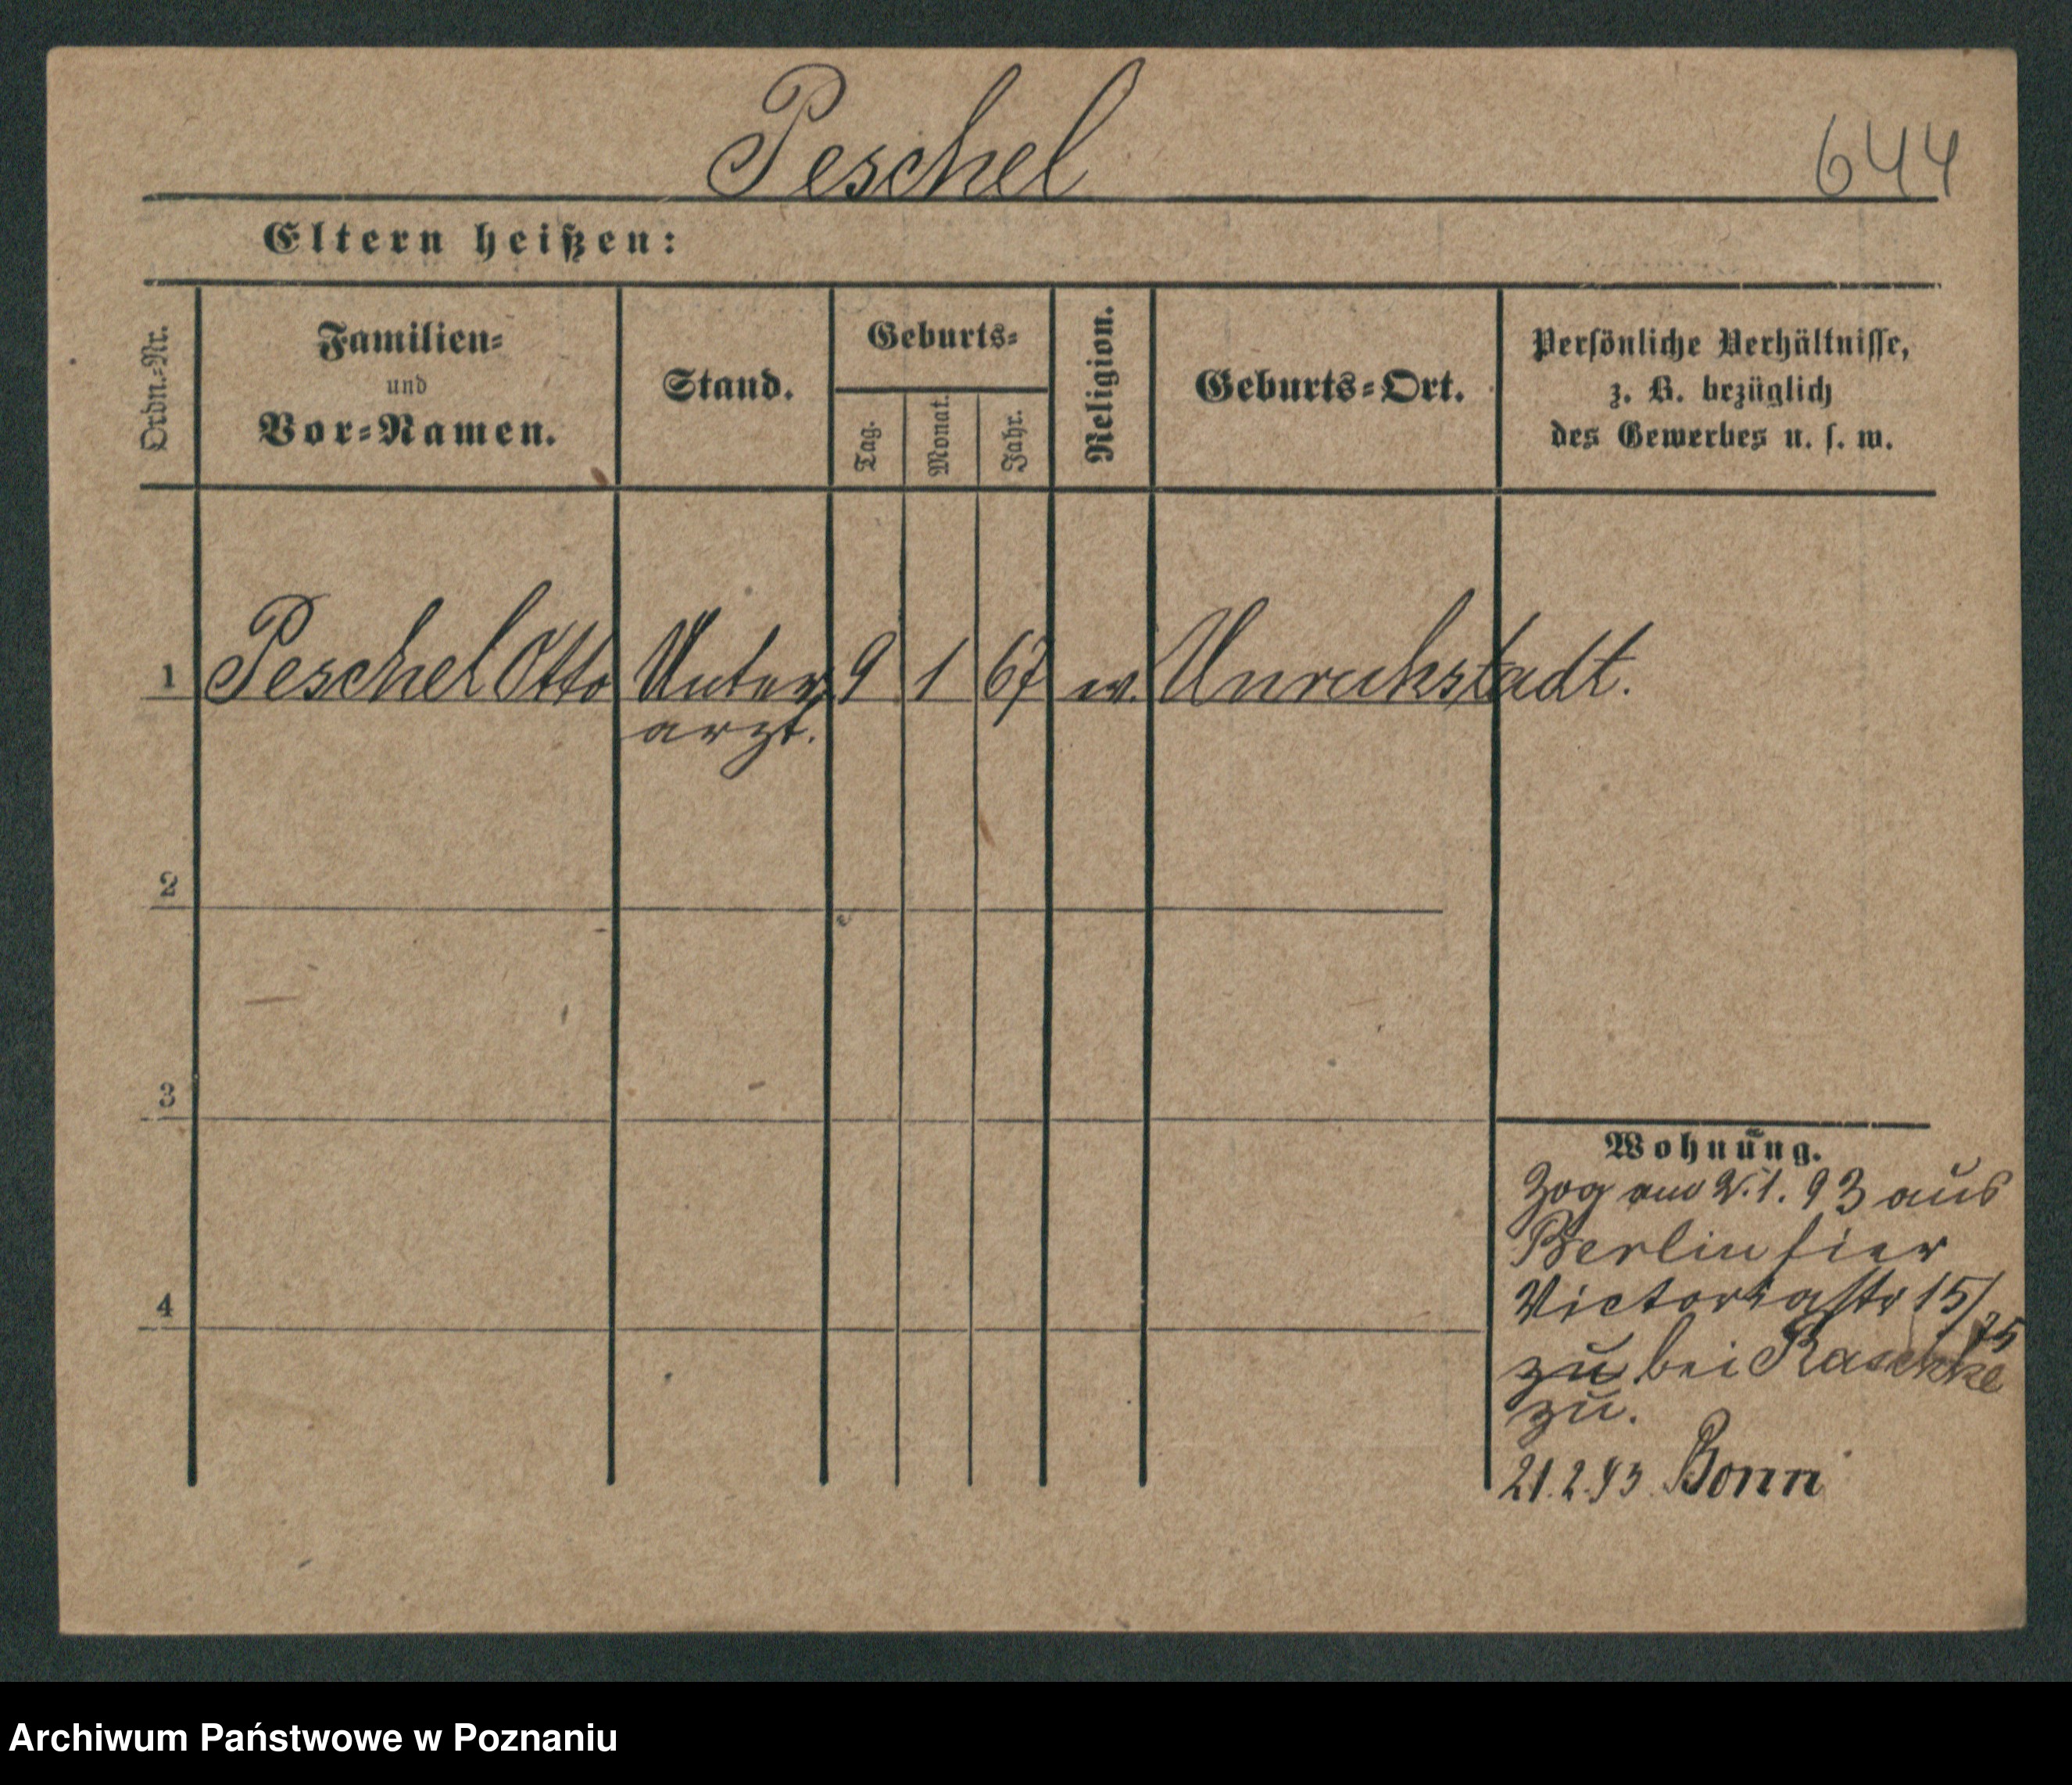 Peschel
644
Eltern heißen:
Ordn.-Nr.
Familien-
und
Vor-Namen.
Stand.
Geburts-
Tag.
Monat.
Jahr.
Religion.
Geburts-Ort.
Persönliche Verhältnisse,
z. B. bezüglich
des Gewerbes u. s. w.
1 Peschel Otto Unter 9 1 67 ev. Unruhstadt.
arzt.
2
3
4
Wohnung.
Zog am 2.1.93 aus
Berlin hier
Victoriastr 15/
75
zu bei Raschke
zu.
21.2.93 Bonn
Archiwum Państwowe w Poznaniu